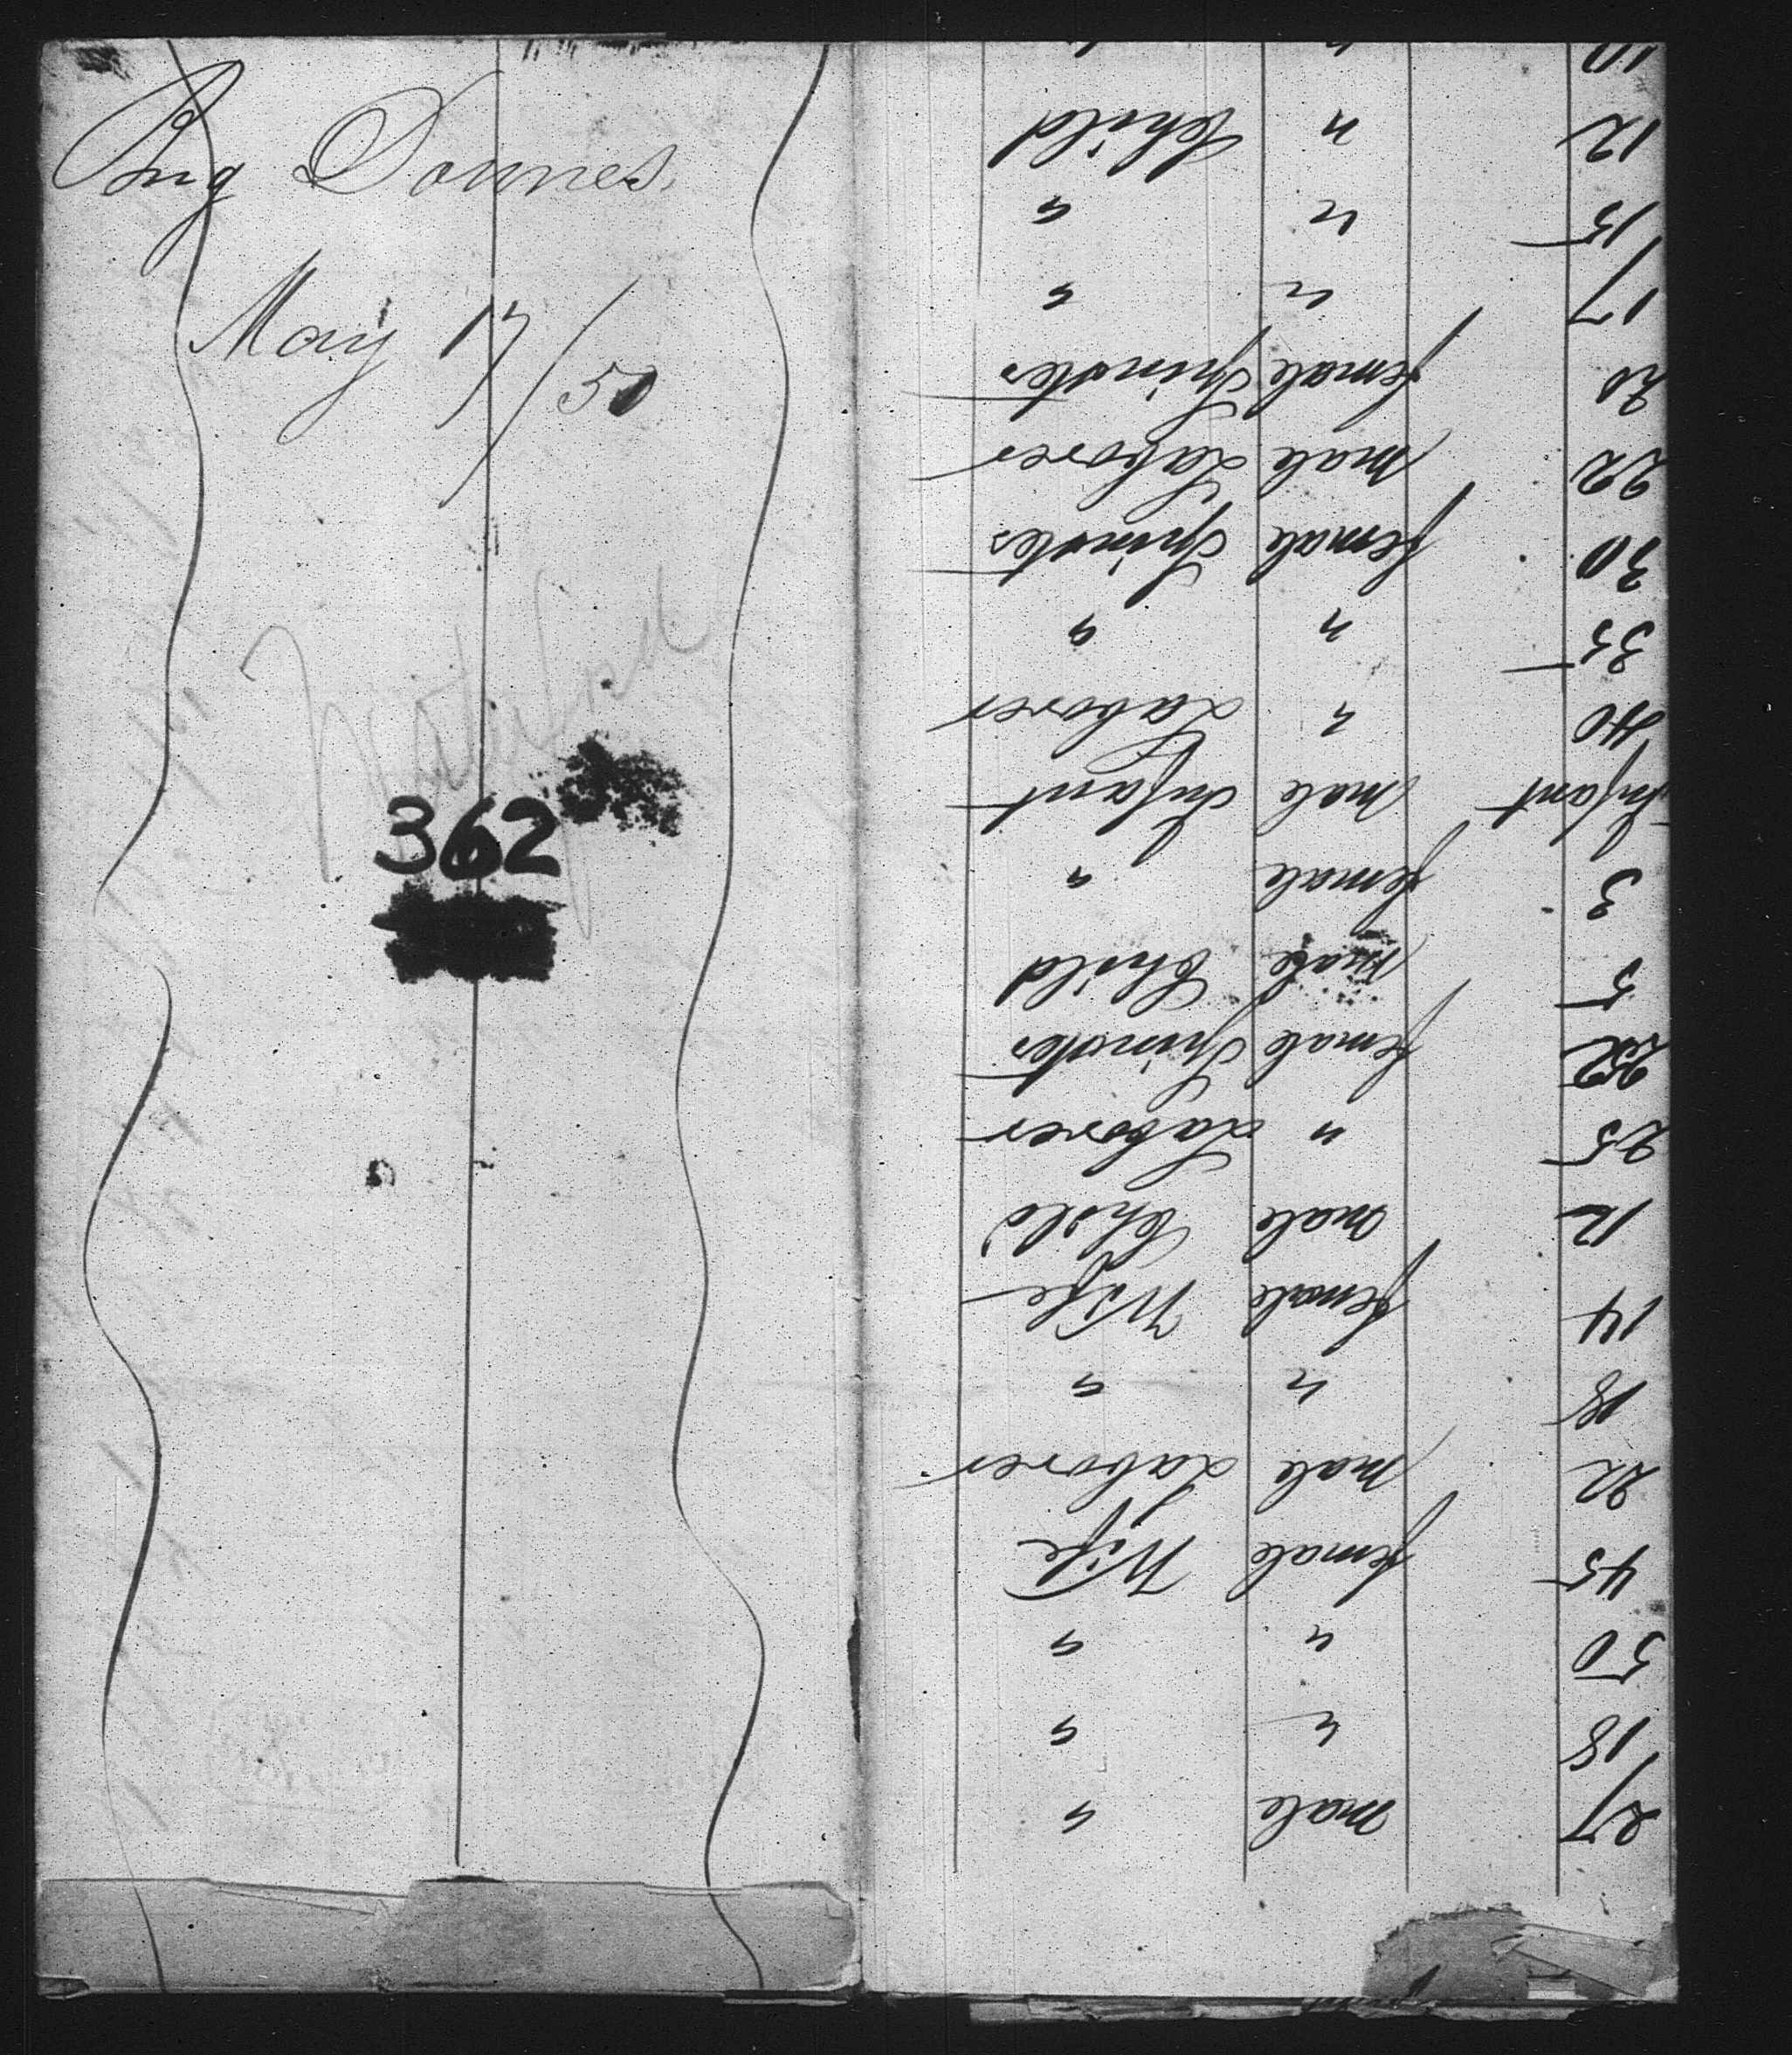 Brig Downes.
May 17/50
Waterford
362
27 male "
18 " "
50 " "
45 female Wife
22 male Laborer
18 " "
14 female Wife
12 male Child
25 " Laborer
female Spinster
5 male Child
3 female "
Infant male Infant
40 " Laborer
35 " "
30 female Spinster
22 male Laborer
20 female Spinster
17 " "
15 " "
12 " Child
10 " "